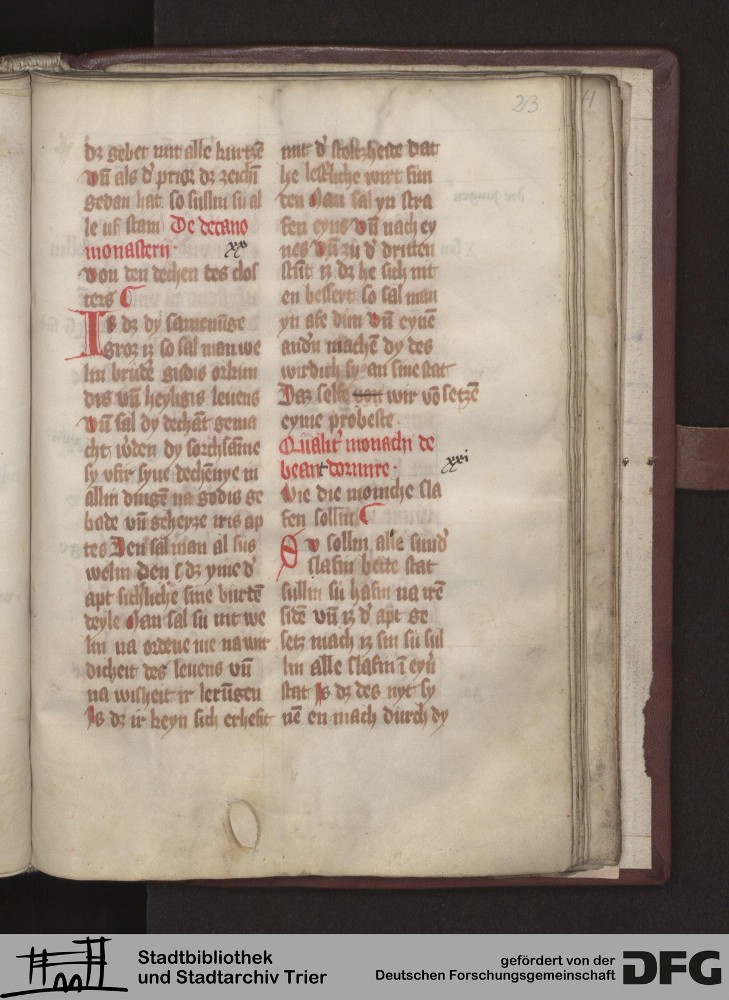 23
dz gebet mit alle kurtzē
vn̄ als d' prior dz zeichī
gedan hat so sullin sii al
le uf stain De decano
monasterii · xx
von den dechen des clos
ters
Is dz dy samenūge
groz iz so sal man we
lin brude gudis orkun
des vn̄ heyligis leuens
vn̄ sal dy dechāt gema
cht w'den dy sorchsame
sy vbir syne dechenye in
allin dingē na godis ge
bode vn̄ geheyze iris ap
tes Den sal man al sus
welin den
apt sichliche sine burdē
deyle Man sal sii nit we
lin na ordene me na wir
dicheit des leuens vn̄
na wisheit ir lerūgen
Is dz ir keyn sich erhebit
mit d' stoltzheide dat
he lestliche wirt fun
den Man sal yn stra
fen eyns vn̄ nach ey
nes vn̄ zu d' dritten
stūt iz dz he sich nit
en bessert so sal man
yn abe dun vn̄ eynē
andn̄ machē dy des
wirdich sy an sine stat
Daz selbe wir vō setzē
eyme probeste ·
Qualit' monachi de
beant dormire · xxi
Wie die moinche sla
fen sollin
Nv sollin alle sund'
slafin bette stat
sullin sii habin na irē
sidē vn̄ iz d' apt ge
setz mach iz sin sii sul
lin alle slafin ī eyn'
stat Is dz des nyt sy
nē en mach durch dy
Stadtbibliothek
und Stadtarchiv Trier
gefördert von der
Deutschen Forschungsgemeinschaft
DFG